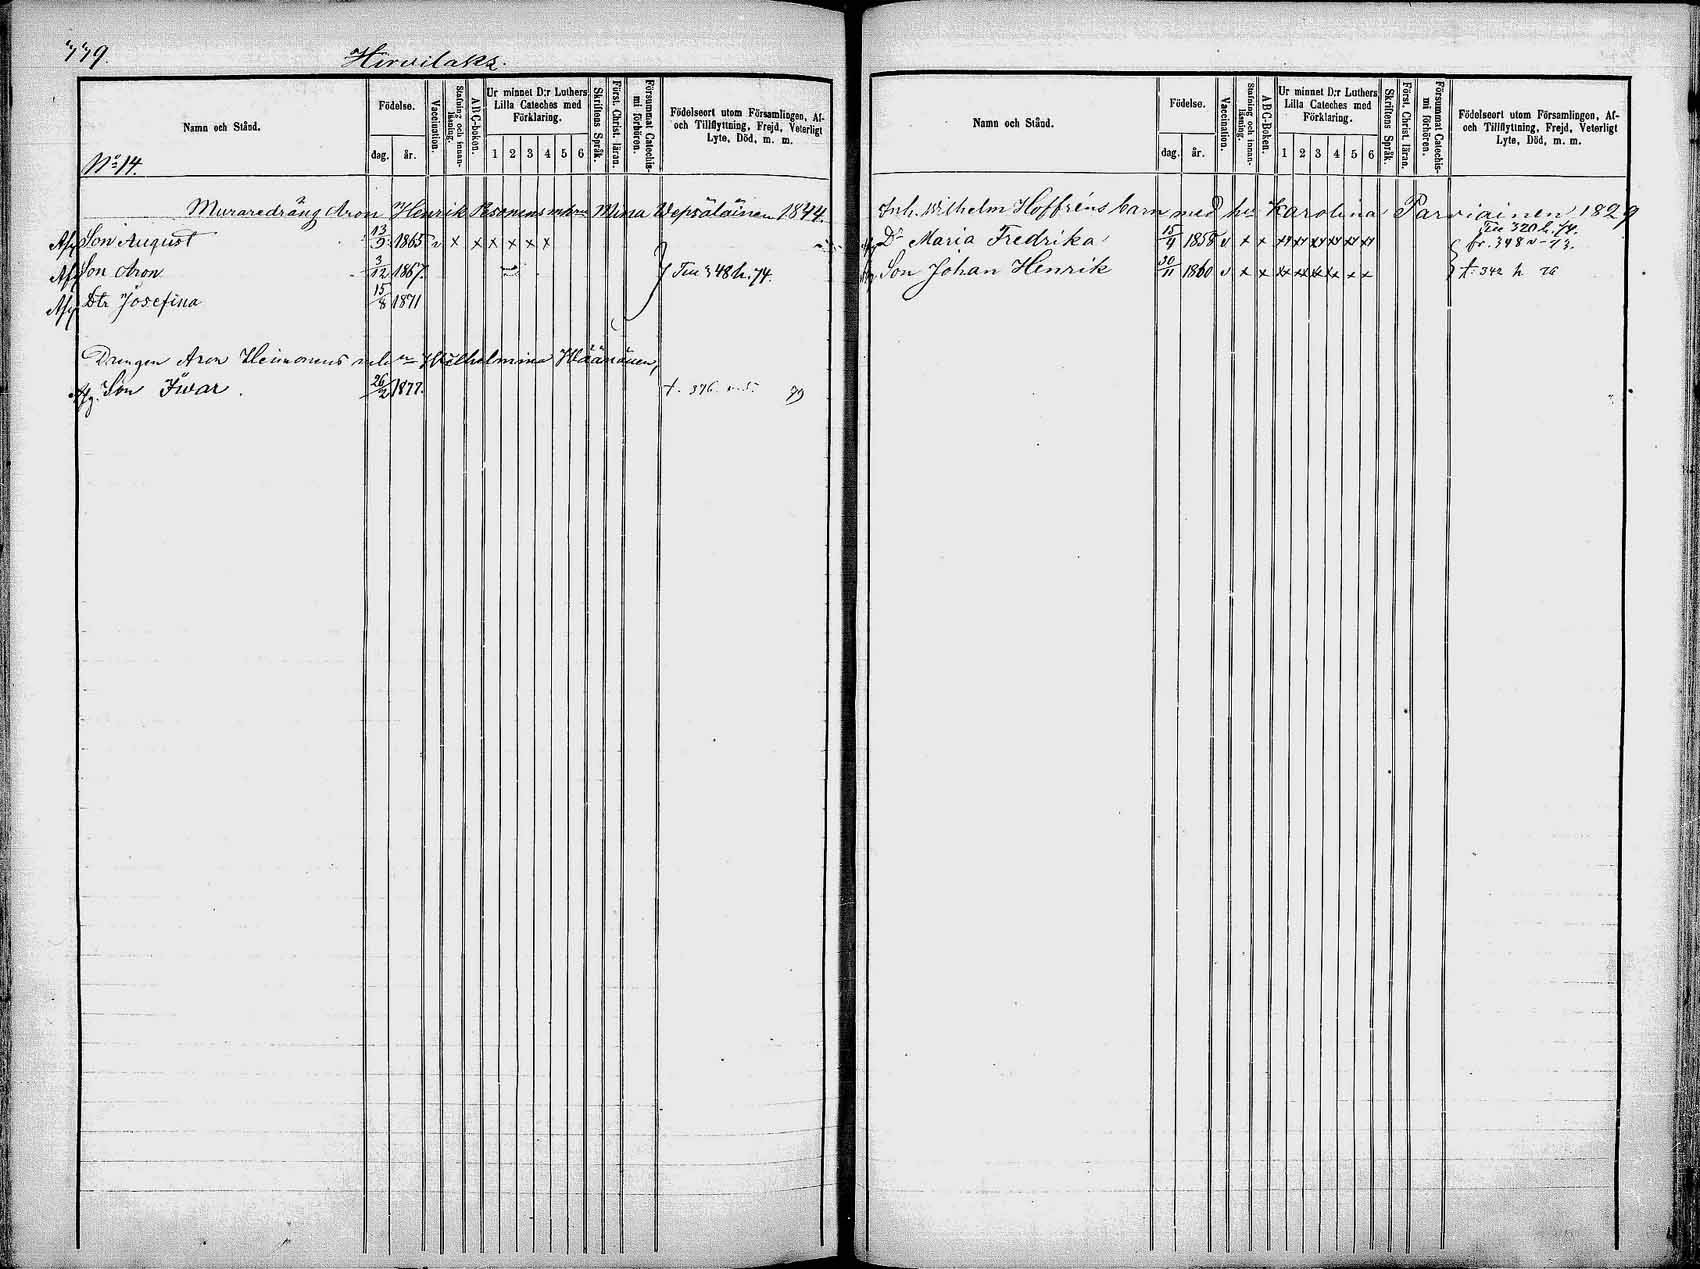 779.
Hirvilaks.
Namn och Stånd.
Födelse.
dag.
år.
Vaccination.
Stafning och innan-läsning.
ABC-boken.
Ur minnet D:r Luthers Lilla Cateches med Förklaring.
1 2 3 4 5 6
Skriftens Språk.
Först. Christ. läran.
Försummat Catechismi förhören.
Födelseort utom Församlingen, Af- och Tillflyttning, Frejd, Veterligt Lyte, Död, m. m.
No 14.
Muraredräng Aron Henrik Pesonens med Mina Wepsäläinen 1844.
Afg Son August 13/9 1865 v x x x x x x
Afg Son Aron 3/12 1867. Tu 348 h. 74.
Afg Dtr Josefina 15/8 1871
Drengen Aron Heimonens Wilhelmina Wäänänen,
Afg. Son Iwar. 26/2 1877. t. 376. 79
Namn och Stånd.
Födelse.
dag.
år.
Vaccination.
Stafning och innan-läsning.
ABC-boken.
Ur minnet D:r Luthers Lilla Cateches med Förklaring.
1 2 3 4 5 6
Skriftens Språk.
Först. Christ. läran.
Försummat Catechismi förhören.
Födelseort utom Församlingen, Af- och Tillflyttning, Frejd, Veterligt Lyte, Död, m. m.
Inh. Wilhelm Hoffréns barn med hu Karolina Parviainen 1829
Tu 320 h. 74.
Afg Dr Maria Fredrika 15/9 1858 v x x xx xx xx xx xx xx fr. 348 v 73.
Afg Son Johan Henrik 30/11 1860 v x x xx xx xx xx x x t. 342 h 76